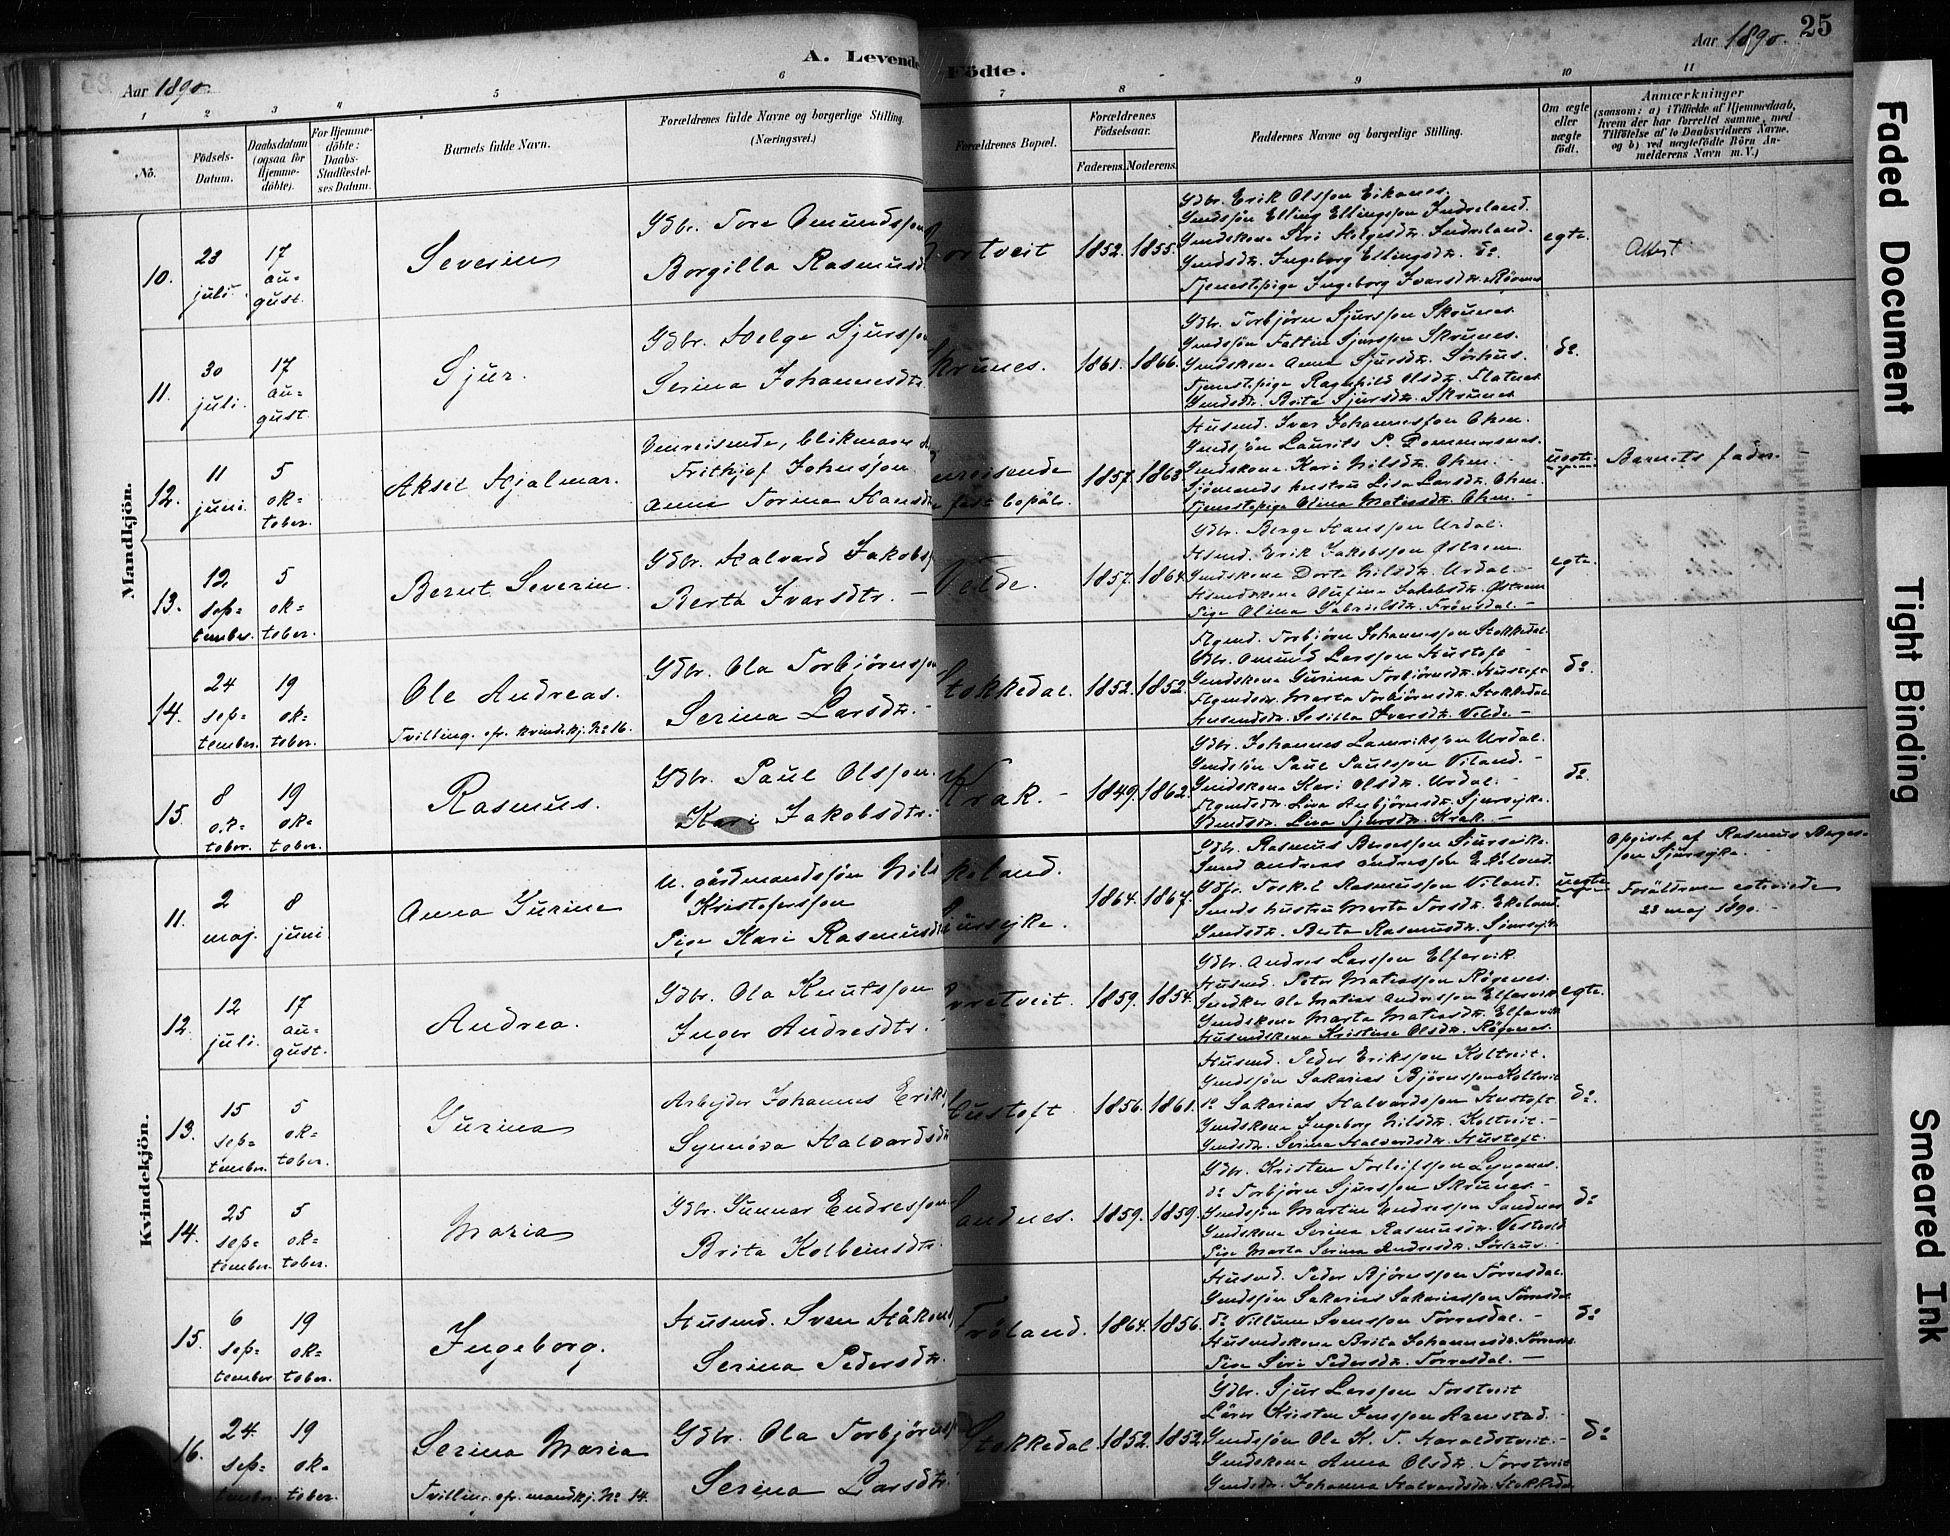 Aar 1890.
A. Levende Födte.
Aar 1890.
25
1 2 3 4 5 6 7 8 9 10 11
No.
Födsels-Datum.
Daabsdatum (ogsaa for Hjemme-döbte).
For Hjemme-döbte: Daabs-Stadfæstel-ses Datum.
Barnets fulde Navn.
Forældrenes fulde Navne og borgerlige Stilling. (Næringsvei.)
Forældrenes Bopæl.
Forældrenes Födselsaar.
Faderens. Moderens.
Faddernes Navne og borgerlige Stilling.
Om ægte eller uægte födt.
Anmærkninger
(saasom: a) i Tilfælde af Hjemmedaab, hvem der har forrettet samme, med Tilföielse af to Daabsvidners Navne, og b) ved uægtefödte Börn An-melderens Navn m. V.)
Mandkjön.
10.
23 juli.
17 au=gust.
Severin
Gdbr. Tore Omundsson
Borgilla Rasmusd
ortveit
1852. 1855.
Gdbr. Erik Olsson Eikanes.
Gmdssön Elling Ellingsson Indreland.
Gmdskone Siri Helgesdtr. Indreland.
Gmdsdtr. Ingeborg Ellingsdtr. do.
Tjenestepige Ingeborg Ivarsdtr.
egte.
11.
30 juli.
17 au=gust.
Sjur.
Gdbr. Helge Sjursson
Serina Johannesdtr.
Skrunes.
1861. 1866.
Gdbr. Torbjörn Sjursson Skrunes.
Gmdssön Sjursson Skrunes.
Gmdskone Anna Sjursdtr. Sörhus.
Tjenestepige Ragnhild Olsdtr. Flatnes.
Gmdsdtr. Brita Sjursdtr. Skrunes.
do.
12.
11 juni.
5 ok=tober.
Aksel Hjalmar.
Omreisende, blikmager
Frithjof Johnsson
Anna Torina Hansdtr
omreisende
fast bopäl.
1857. 1863.
Husmd. Ivar Johannesson Ohm.
Gmdssön Laurits P. Dommersnes.
Gmdskone Kari Nilsdtr. Ohm.
Sjömands hustru Lisa Larsdtr. Ohm.
Tjenestepige Olina Matiasdtr. Ohm.
uegte
Barnets fader.
13.
12 sep=tember.
5 ok=tober.
Bernt Severin.
Gdbr. Halvard Jakobs
Berta Ivarsdtr.
Velde.
1857. 1864.
Gdbr. Berge Hansson Urdal.
Husmd. Erik Jakobsson Östrem.
Gmdskone Dorta Nilsdtr. Urdal.
Husmdskone Olufine Jakobsdtr. Östrem
Pige Olina Gabrielsdtr. Frönsdal.
egte.
14.
24 sep=tember.
19 ok=tober.
Ole Andreas.
Tvilling. cfr. kvindekj. No 16.
Gdbr. Ola Torbjörnsson
Serina Larsdtr.
Stokkedal.
1852. 1852.
Torbjörn Johannesson Stokkedal.
Gdbr. Omund Larsson Hustoft
Gmdskone Gurina Torbjörnsdtr. Hustoft
Marta Torbjörnsdtr. Stokkedal
Husmdsdtr. Sesilla Ivarsdtr. Velde.
do.
15.
8 ok=tober.
19 ok=tober.
Rasmus.
Gdbr. Paul Olsson.
Kari Jakobsdtr.
Krak.
1849. 1862.
Gdbr. Johannes Lauriksson Urdal.
Gmdssön Paul Paulsson Viland.
Gmdskone Kari Olsdtr. Urdal.
Lina Asbjörnsdtr. Sjursejke.
Gmdsdtr. Lina Sjursdtr. Krak.
do.
Kvindekjön.
11.
2 maj.
8 juni.
Anna Gurine
U. gårdmandssön Nils
Kristofersson
Pige Kari Rasmusdtr
keland.
Sjursejke.
1864. 1867.
Gdbr. Rasmus Bergesson Sjursejke.
Smed Andreas Andresson Ekeland.
Gdbr. Torkel Rasmusson Viland.
Smeds hustru Marta Torsdtr. Ekeland.
Gmdsdtr. Berta Rasmusdtr. Sjursejke
uegte
Opgivet af Rasmus Berges-
son Sjursejke.
Forældrene egteviede
23 maj 1890.
12.
12 juli.
17 au=gust.
Andrea.
Gdbr. Ola Knutsson
Inger Andresdtr.
vretveit.
1859. 1854.
Gdbr. Andres Larsson Elfervik.
Husmd. Peter Matiasson Rögenes.
Ole Matias Andresson Elfervik
Gmdskone Marta Matiasdtr. Elfervik
Husmdskone Kristine Olsdtr. Rögenes.
egte.
13.
15 sep=tember.
5 ok=tober.
Gurina
Arbejder Johannes Eriks
Synnöva Halvardsdtr
Hustoft
1856. 1861.
Husmd. Peder Eriksson Koltveit.
Gmdssön Sakarias Björnsson Koltveit
do. Sakarias Halvardsson Hustoft
Gmdskone Ingeborg Nilsdtr. Koltveit.
Gmdsdtr. Serina Halvardsdtr. Hustoft.
do.
14.
25 sep=tember.
5 ok=tober.
Maria
Gdbr. Gunnar Endresson
Brita Kolbeinsdtr.
Sandnes.
1859. 1859.
Gdbr. Kristen Torleifsson
do. Torbjörn Sjursson Skrunes.
Gmdssön Martin Endresson Sandnes
Gmdskone Serina Rasmusdtr.
Pige Marta Serina Andresdtr. Sörhus.
do.
15.
6 sep=tember
19 ok=tober.
Ingeborg.
Husmd. Sven Håkons
Serina Pedersdtr.
Tröland.
1864. 1856.
Husmd. Peder Björnsson Törresdal.
Gmdssön Sakarias Sakariasson Törresdal
do. Villum Svensson Törresdal.
Husmdskone Brita Johannesdtr. Törresdal
Pige Siri Pedersdtr. Törresdal.
do.
16.
24 sep=tember.
19 ok=tober.
Serina Maria
Tvilling. cfr. mandkj. No 14.
Gdbr. Ola Torbjörnss
Serina Larsdtr.
Stokkedal
1852. 1852.
Gdbr. Sjur Larsson Torstveit
Lärer Kristen Jensson
Gmdssön Ole K. T. Haraldstveit.
Gmdskone Anna Olsdtr. Torstveit
Gmdsdtr. Johanna Halvardsdtr. Stokkedal
do.
Faded Document
Tight Binding
Smeared Ink